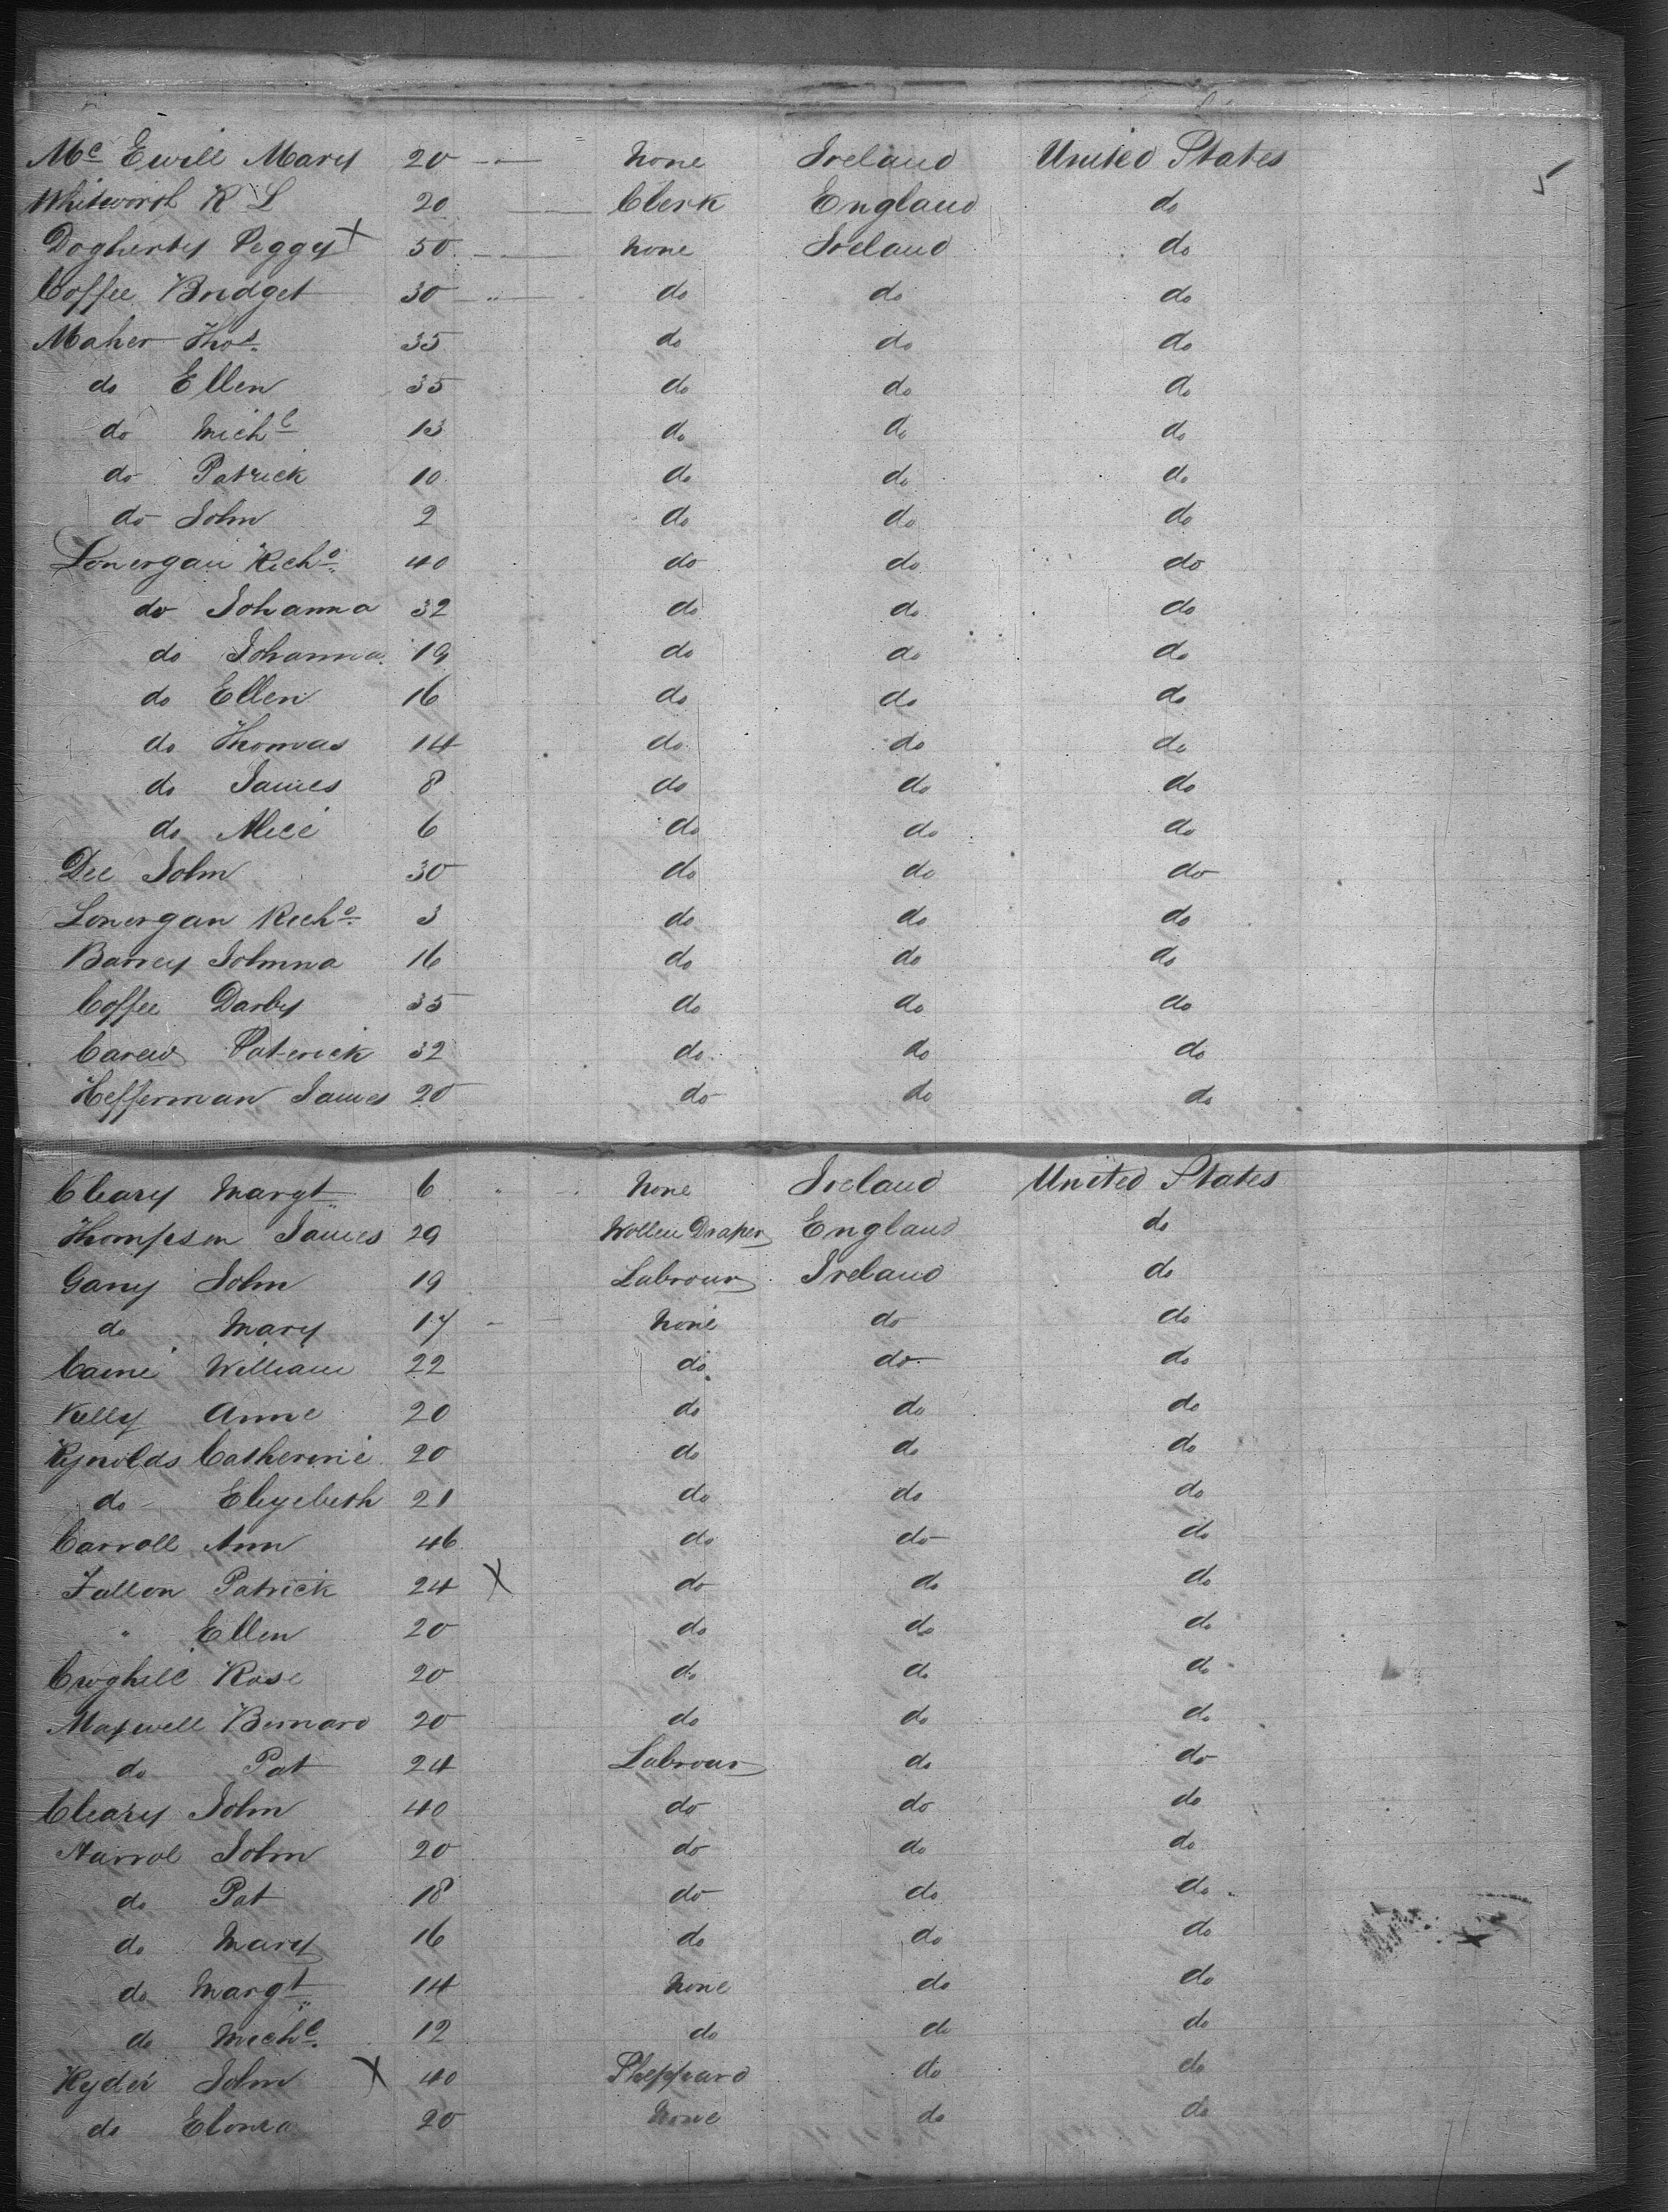 Mc Ewill Mary 20 none Ireland United States
Whitworth R L 20 Clerk England do
Dogherty Peggy X 50 none Ireland do
Coffee Bridget 30 do do do
Maher Thos. 35 do do do
do Ellen 35 do do do
do Michl 13 do do do
do Patrick 10 do do do
do John 2 do do do
Lonergan Richd. 40 do do do
do Johanna 32 do do do
do Johanna 19 do do do
do Ellen 16 do do do
do Thomas 14 do do do
do James 8 do do do
do Alice 6 do do do
Dee John 30 do do do
Lonergan Richd. 3 do do do
Barrey Johnna 16 do do do
Coffee Darby 35 do do do
Carew Paterick 32 do do do
Hefferman James 20 do do do
Cleary Margt. 6 none Ireland United States
Thompson James 29 Wollen Draper England do
Gany John 19 Labrour Ireland do
do Mary 17 none do do
Caine William 22 do do do
Kelly Anne 20 do do do
Rynolds Catherine 20 do do do
do Elizebeth 21 do do do
Carroll Ann 46 do do do
Fallon Patrick 24 X do do do
" Ellen 20 do do do
Rose 20 do do do
Maxwell Bernard 20 do do do
do Pat 24 Labrour do do
Cleary John 40 do do do
John 20 do do do
do Pat 18 do do do
do Mary 16 do do do
do Margt. 14 none do do
do Michl. 12 do do do
Ryder John X 40 Sheppard do do
do 20 none do do